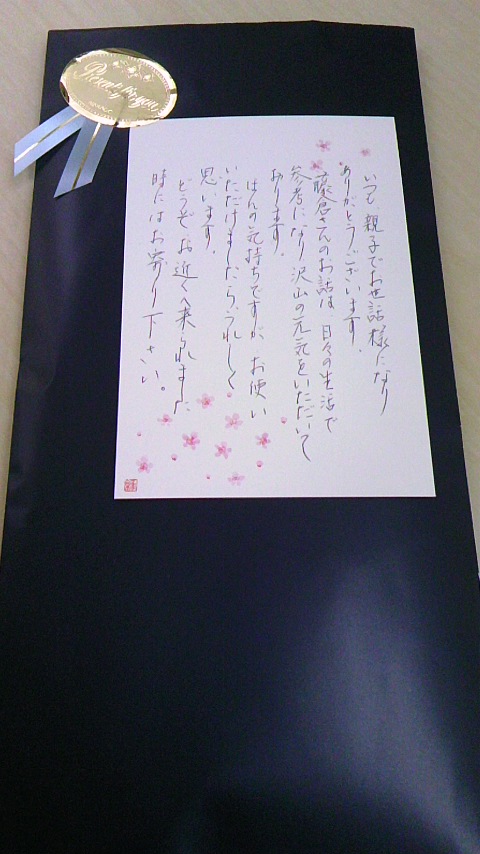 Present for you
いつも親子でお世話様になり
ありがとうございます.
藤倉さんのお話は、日々の生活で
参考になり沢山の元気をいただいて
おります.
ほんの気持ちですが、お使い
いただけましたらうれしく
思います.
どうぞお近くへ来られました
時にはお寄り下さい。